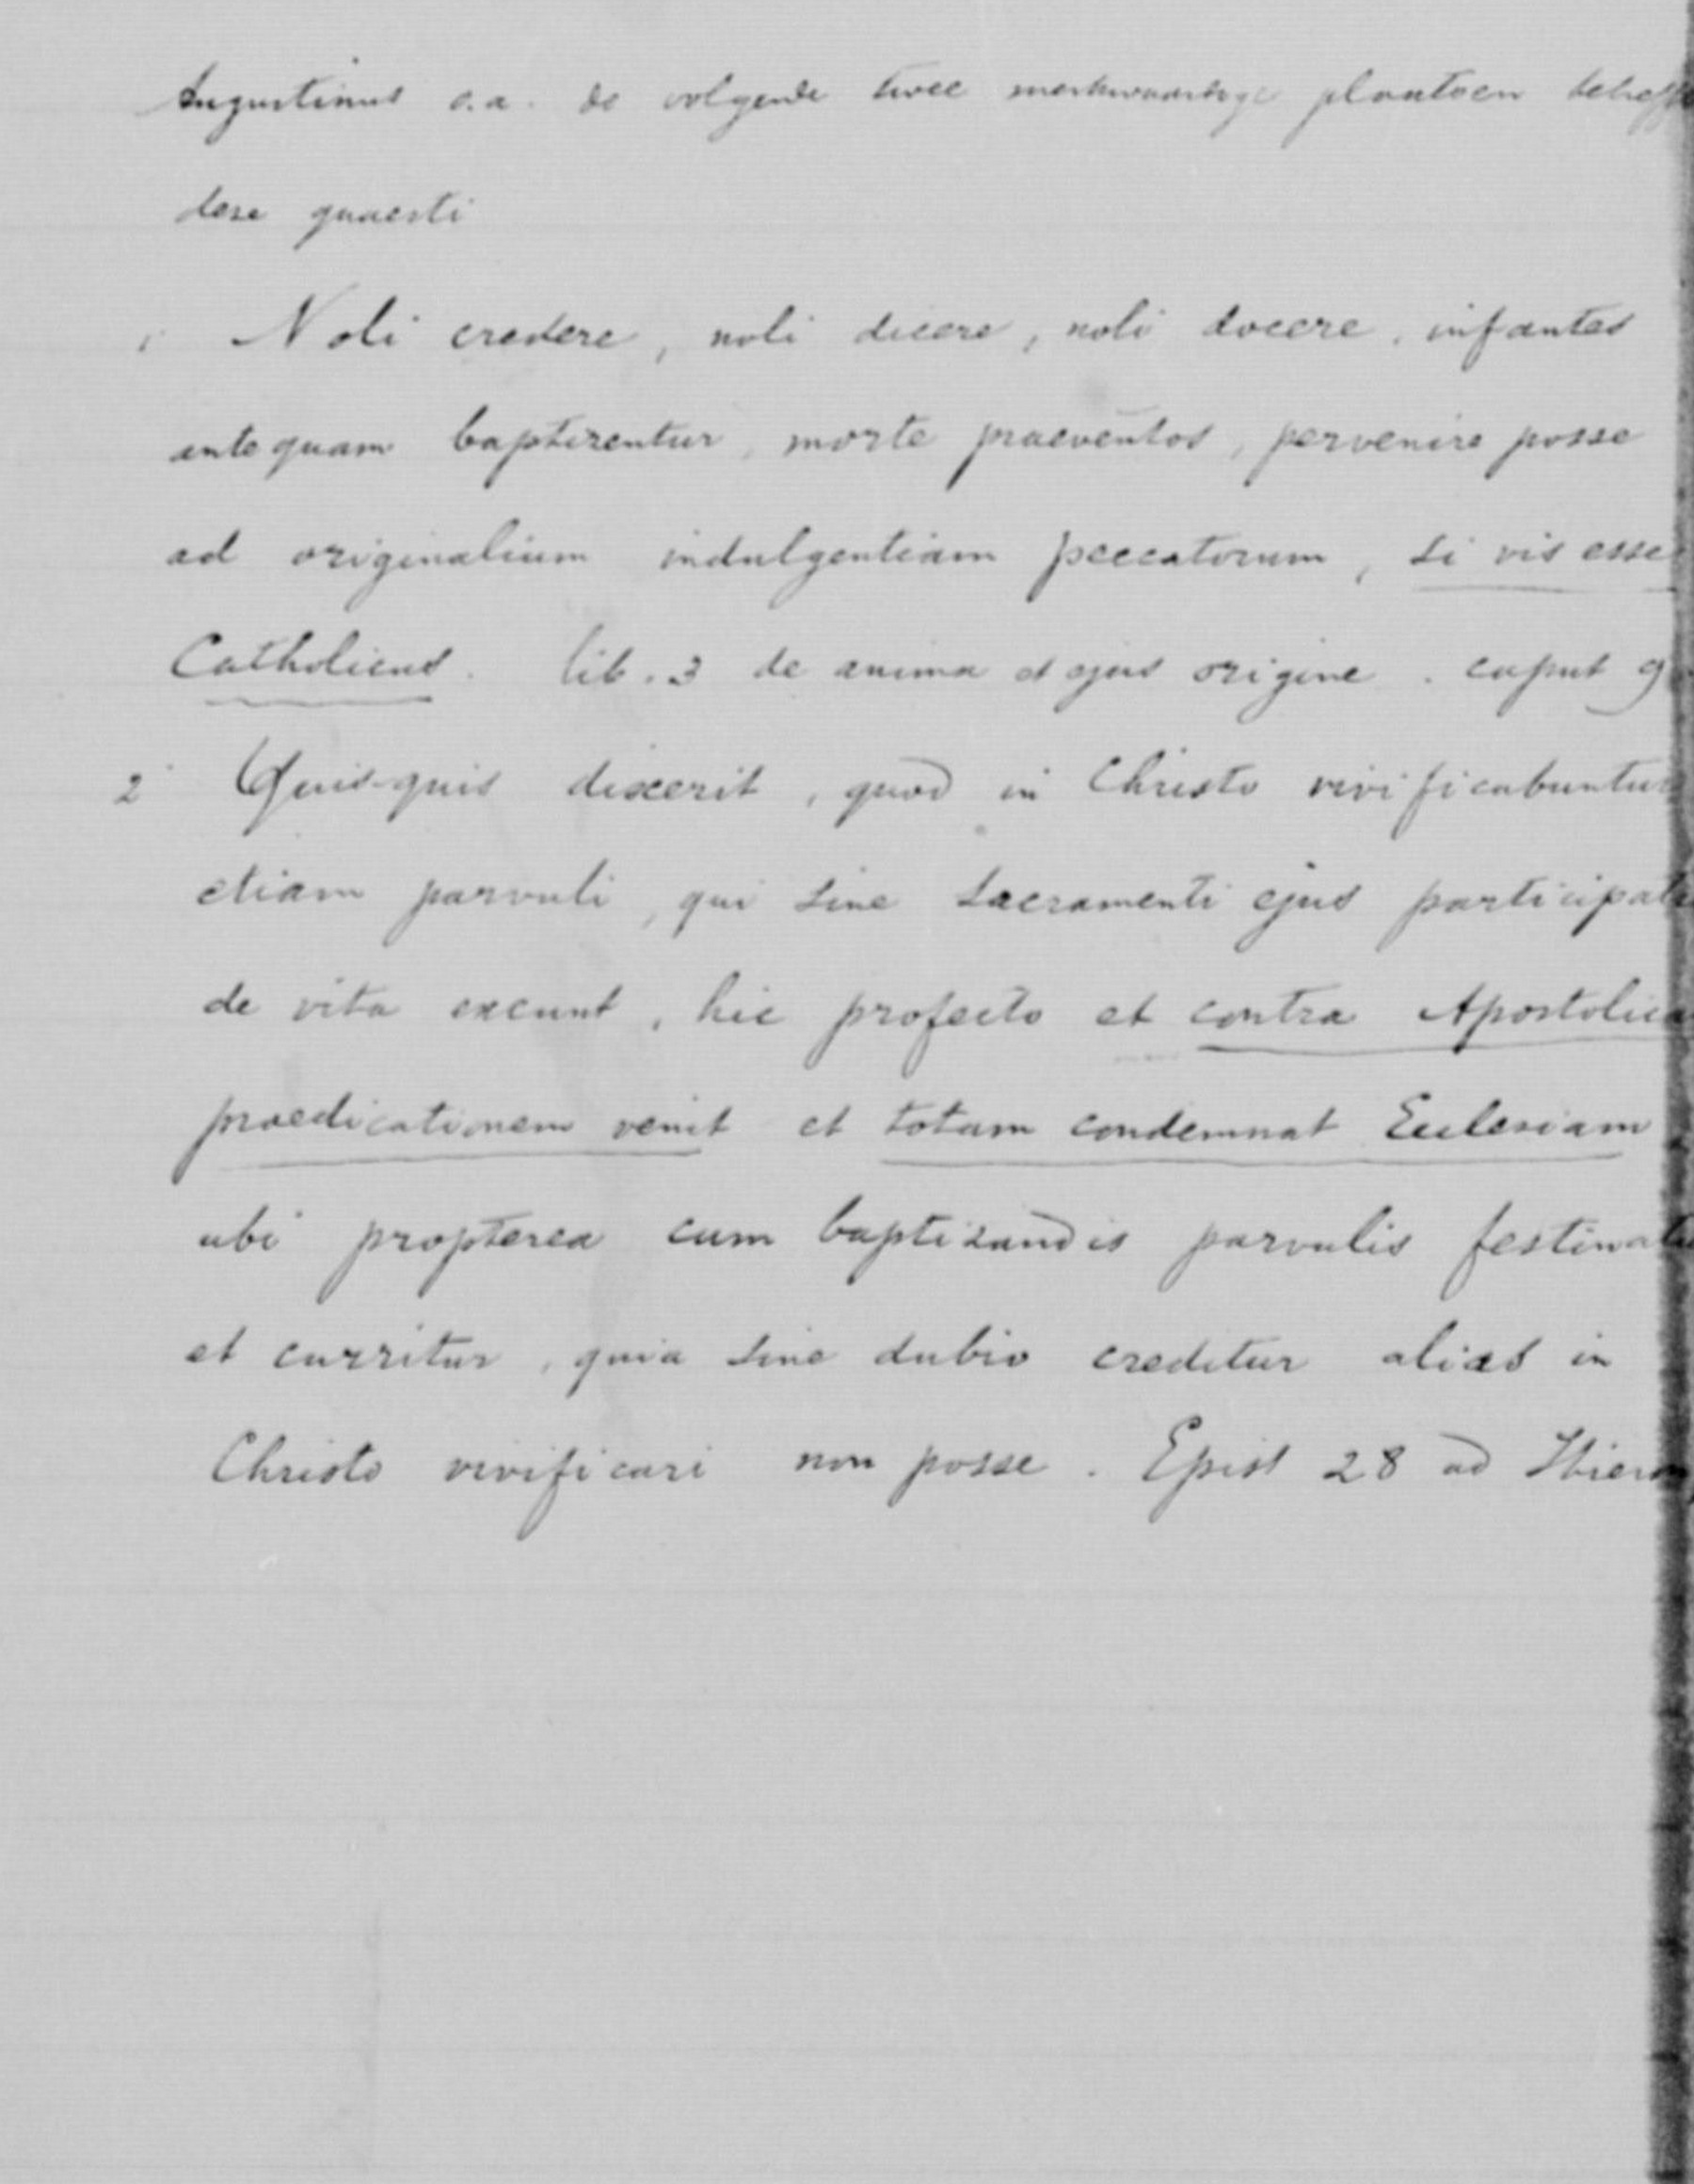 Augustinus o.a. de volgende twee merkwaardige plaatsen
deze quaesti
1 Noli credere, noli dicere, noli docere, infantes
antequam baptizentur, morte praeventos, pervenire posse
ad originalium indulgentiam peccatorum, si vis esse
Catholicus. lib. 3 de anima et ejus origine. caput 9
2 Quis-quis dixerit, quod in Christo vivificabuntur
etiam parvuli, qui sine sacramenti ejus participat
de vita exeunt, hic profecto et contra Apostolica
praedicationem venit et totam condemnat Ecclesiam
ubi propterea cum baptizandis parvulis festinat
et curritur, quia sine dubio creditur alias in
Christo vivificari non posse. Epist 28 ad Hieron